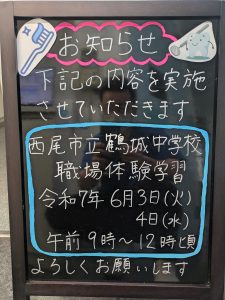 お知らせ
下記の内容を実施
させていただきます
西尾市立鶴城中学校
職場体験学習
令和7年 6月3日(火)
4日(水)
午前9時~12時頃
よろしくお願いします